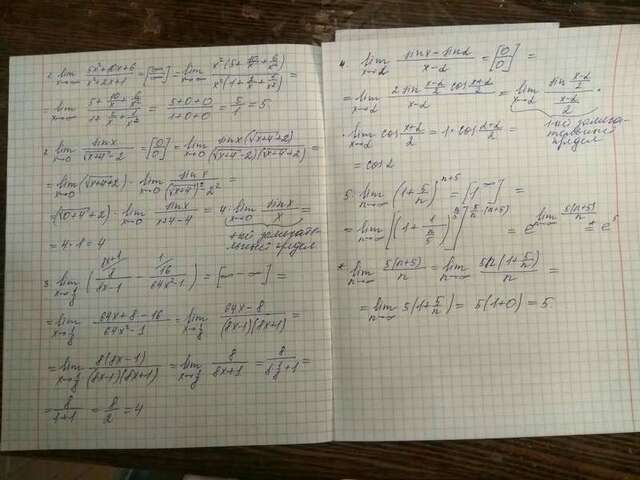 1. lim x→∞ (5x²+10x+6)/(x²+2x+1) = [∞/∞] = lim x→∞ x²(5+10/x+6/x²)/x²(1+2/x+1/x²) =
= lim x→∞ (5+10/x+6/x²)/(1+2/x+1/x²) = (5+0+0)/(1+0+0) = 5/1 = 5.
2. lim x→0 sinx/(√(x+4)-2) = [0/0] = lim x→0 sinx(√(x+4)+2)/(√(x+4)-2)(√(x+4)+2) =
= lim x→0 (√(x+4)+2) · lim x→0 sinx/((√(x+4))²-2²) =
= (√(0+4)+2) · lim x→0 sinx/(x+4-4) = 4 · lim x→0 sinx/x =
= 4·1 = 4
1-ый замечательный предел
3. lim x→1/8 (8/(8x-1) - 16/(64x²-1)) = [∞-∞] =
= lim x→1/8 (64x+8-16)/(64x²-1) = lim x→1/8 (64x-8)/(8x-1)(8x+1) =
= lim x→1/8 8(8x-1)/(8x-1)(8x+1) = lim x→1/8 8/(8x+1) = 8/(8·1/8+1) =
= 8/(1+1) = 8/2 = 4
4. lim x→α (sinx-sinα)/(x-α) = [0/0] =
= lim x→α (2 sin (x-α)/2 cos (x+α)/2)/(x-α) = lim x→α (sin (x-α)/2)/((x-α)/2) ·
· lim x→α cos (x+α)/2 = 1·cos (α+α)/2 =
1-ый замечательный предел
= cosα
5. lim n→∞ (1+5/n)^(n+5) = [1^∞] =
= lim n→∞ [(1+1/(n/5))^(n/5)]^(5/n·(n+5)) = e^(lim n→∞ 5(n+5)/n) * = e⁵
* lim n→∞ 5(n+5)/n = lim n→∞ 5n(1+5/n)/n =
= lim n→∞ 5(1+5/n) = 5(1+0) = 5.